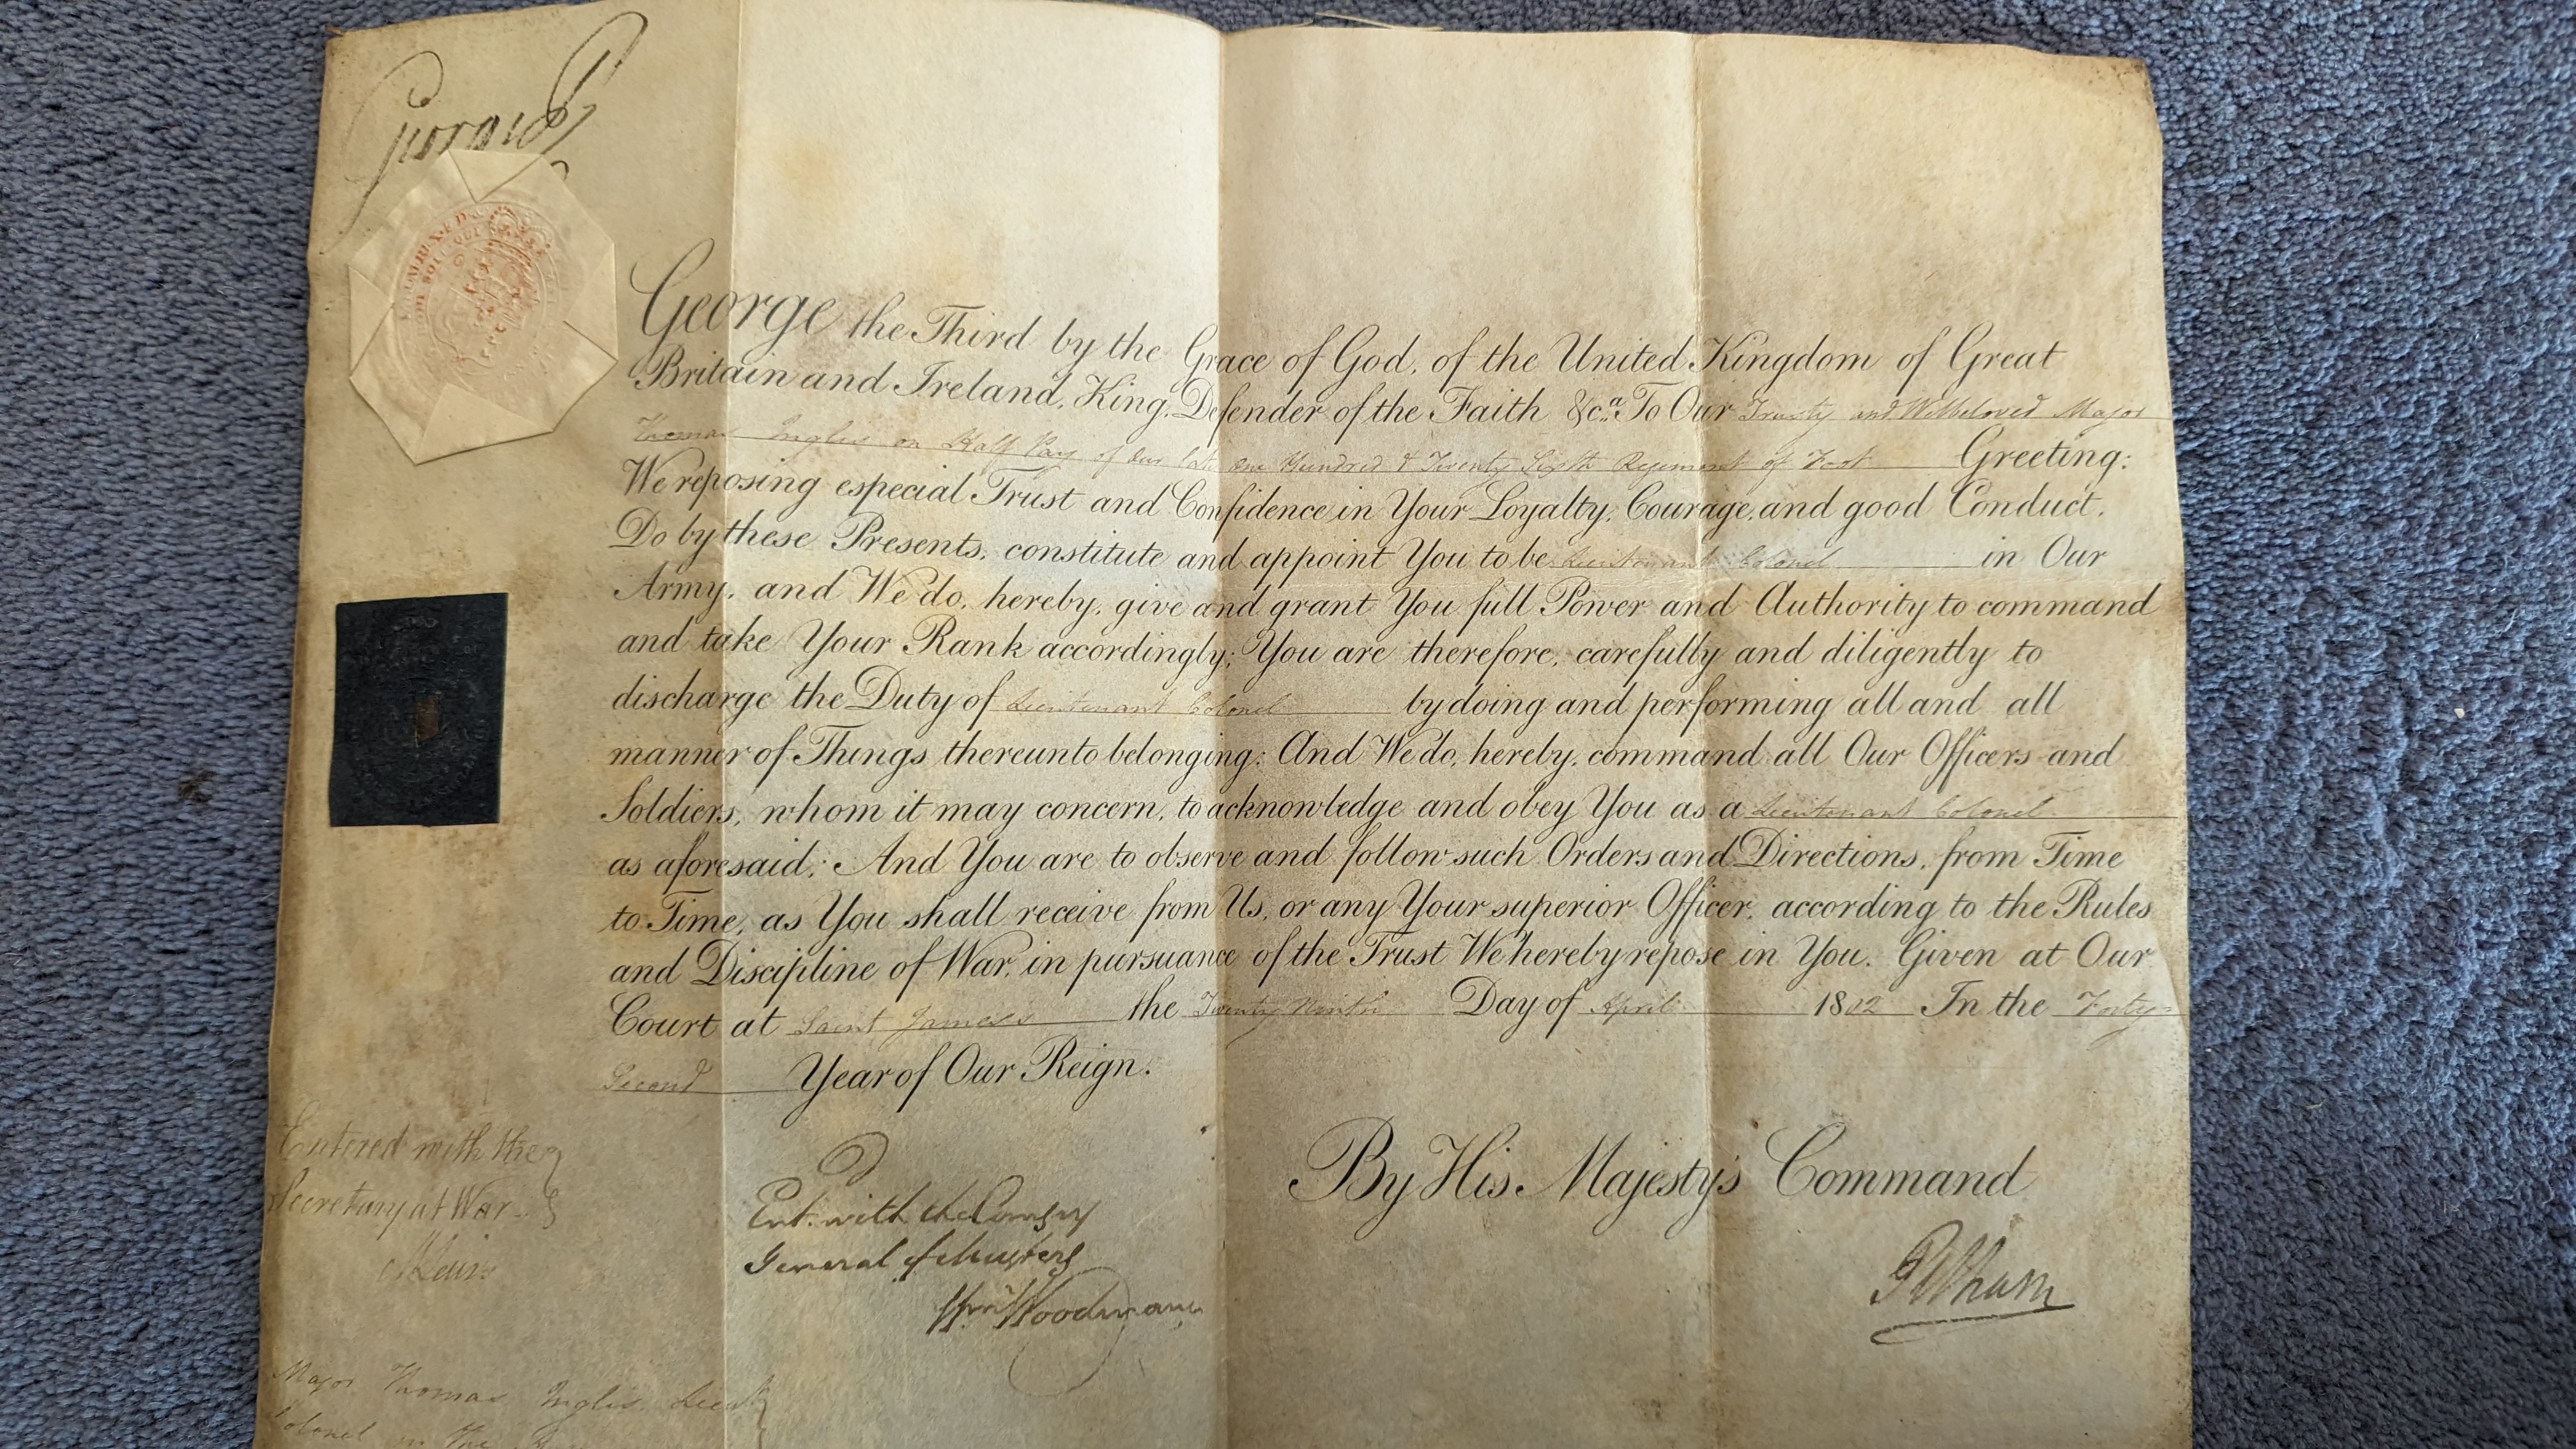 George R
George the Third by the Grace of God, of the United Kingdom of Great
Britain and Ireland, King, Defender of the Faith &c.a To Our Trusty and Welbeloved Major
Thomas Inglis on Half Pay of our late One Hundred & Twenty Sixth Regiment of Foot Greeting:
We reposing especial Trust and Confidence in Your Loyalty, Courage, and good Conduct,
Do by these Presents, constitute and appoint You to be Lieutenant Colonel in Our
Army, and We do, hereby, give and grant You full Power and Authority to command
and take Your Rank accordingly; You are therefore, carefully and diligently to
discharge the Duty of Lieutenant Colonel by doing and performing all and all
manner of Things thereunto belonging: And We do, hereby, command all Our Officers and
Soldiers, whom it may concern, to acknowledge and obey You as a Lieutenant Colonel
as aforesaid; And You are to observe and follow such Orders and Directions, from Time
to Time, as You shall receive from Us, or any Your superior Officer, according to the Rules
and Discipline of War, in pursuance of the Trust We hereby repose in You. Given at Our
Court at Saint James's the Twenty Ninth Day of April 1802 In the Forty-
Second Year of Our Reign.
By His Majesty's Command
Pelham
Entered with the
Secretary at War
Ent. with the Comsry
General of Musters
Wm Woodman
Major Thomas Inglis, Lieut
Colonel in the